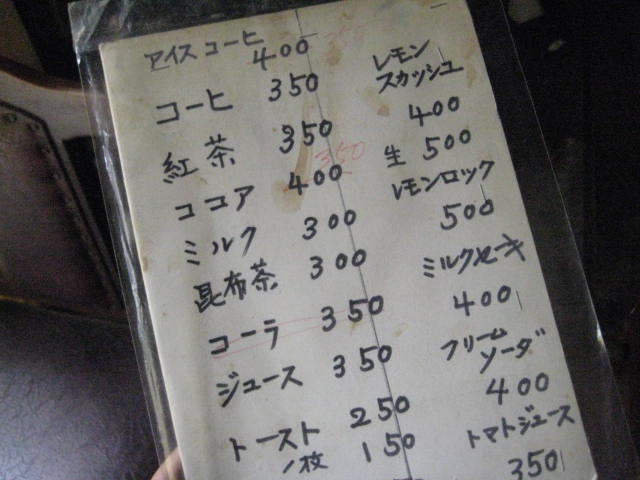 アイスコーヒ 400
コーヒ 350
紅茶 350
ココア 400
350
ミルク 300
昆布茶 300
コーラ 350
ジュース 350
トースト 250
1枚 150
レモン
スカッシュ
400
生 500
レモンロック
500
ミルクセーキ
400
クリーム
ソーダ
400
トマトジュース
350